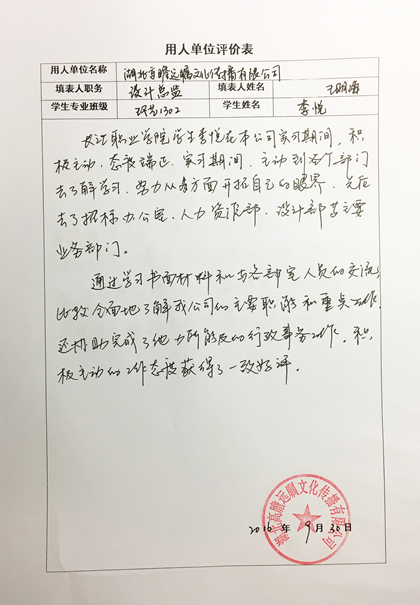 用人单位评价表
用人单位名称 湖北高瞻远瞩文化传播有限公司
填表人职务 设计总监 填表人姓名
学生专业班级 环艺1302 学生姓名 李悦
长江职业学院学生李悦在本公司实习期间，积
极主动、态度端正。实习期间，主动到各个部门
去了解学习，努力从各方面开拓自己的眼界，先后
去了招标办公室、人力资源部、设计部等主要
业务部门。
通过学习书面材料和与各部室人员的交流，
比较全面地了解我公司的主要职能和重点工作，
还协助完成了他力所能及的行政事务工作。积
极主动的工作态度获得了一致好评。
湖北高瞻远瞩文化传播有限公司
2016 年 9 月 30 日